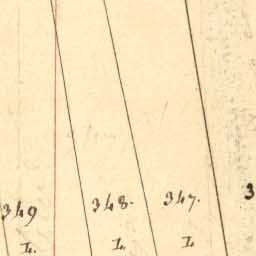 349 348. 347. 3
L. L. L